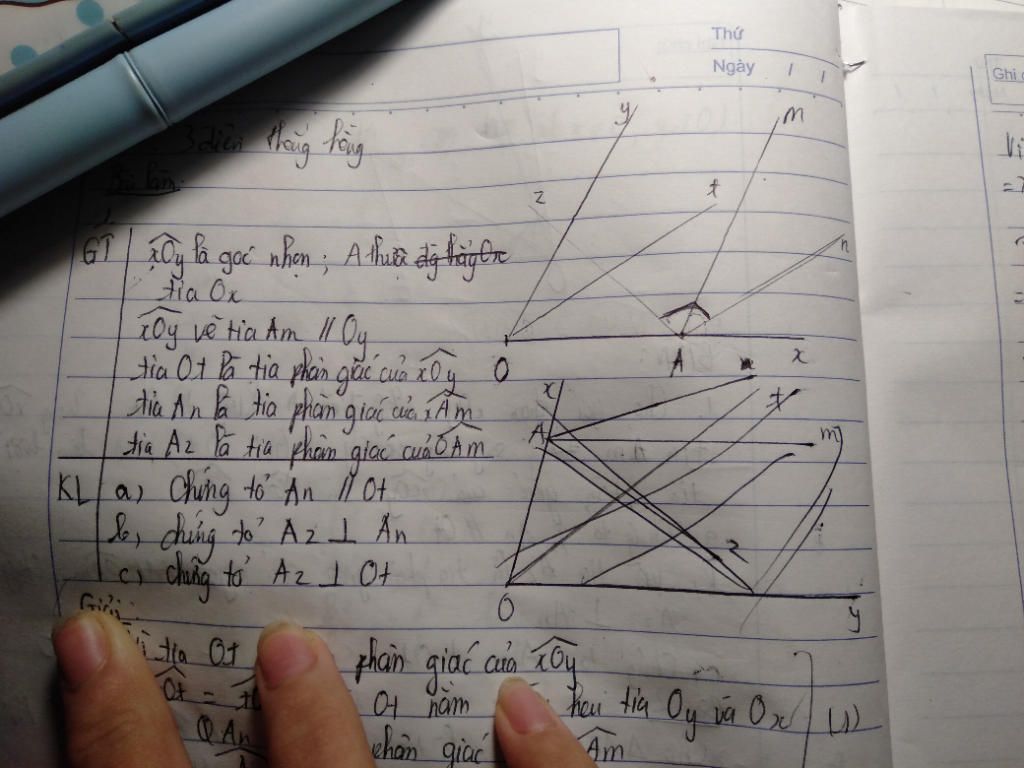 Thứ
Ngày / /
Ghi
3 điền thẳng hàng
Bài làm:
GT
xOy là góc nhọn; A thuộc
tia Ox
xOy vẽ tia Am // Oy
tia Ot là tia phân giác của xOy
tia An là tia phân giác của xAm
tia Az là tia phân giác của OAm
KL
a, Chứng tỏ An // Ot
b, chứng tỏ Az ⊥ An
c, chứng tỏ Az ⊥ Ot
y
m
z
t
n
O
A
x
x
n
t
A
m
z
i
O
y
Giải:
tia Ot phân giác của xOy
Ot = Ot nằm tia Oy và Ox (1)
An phân giác Am